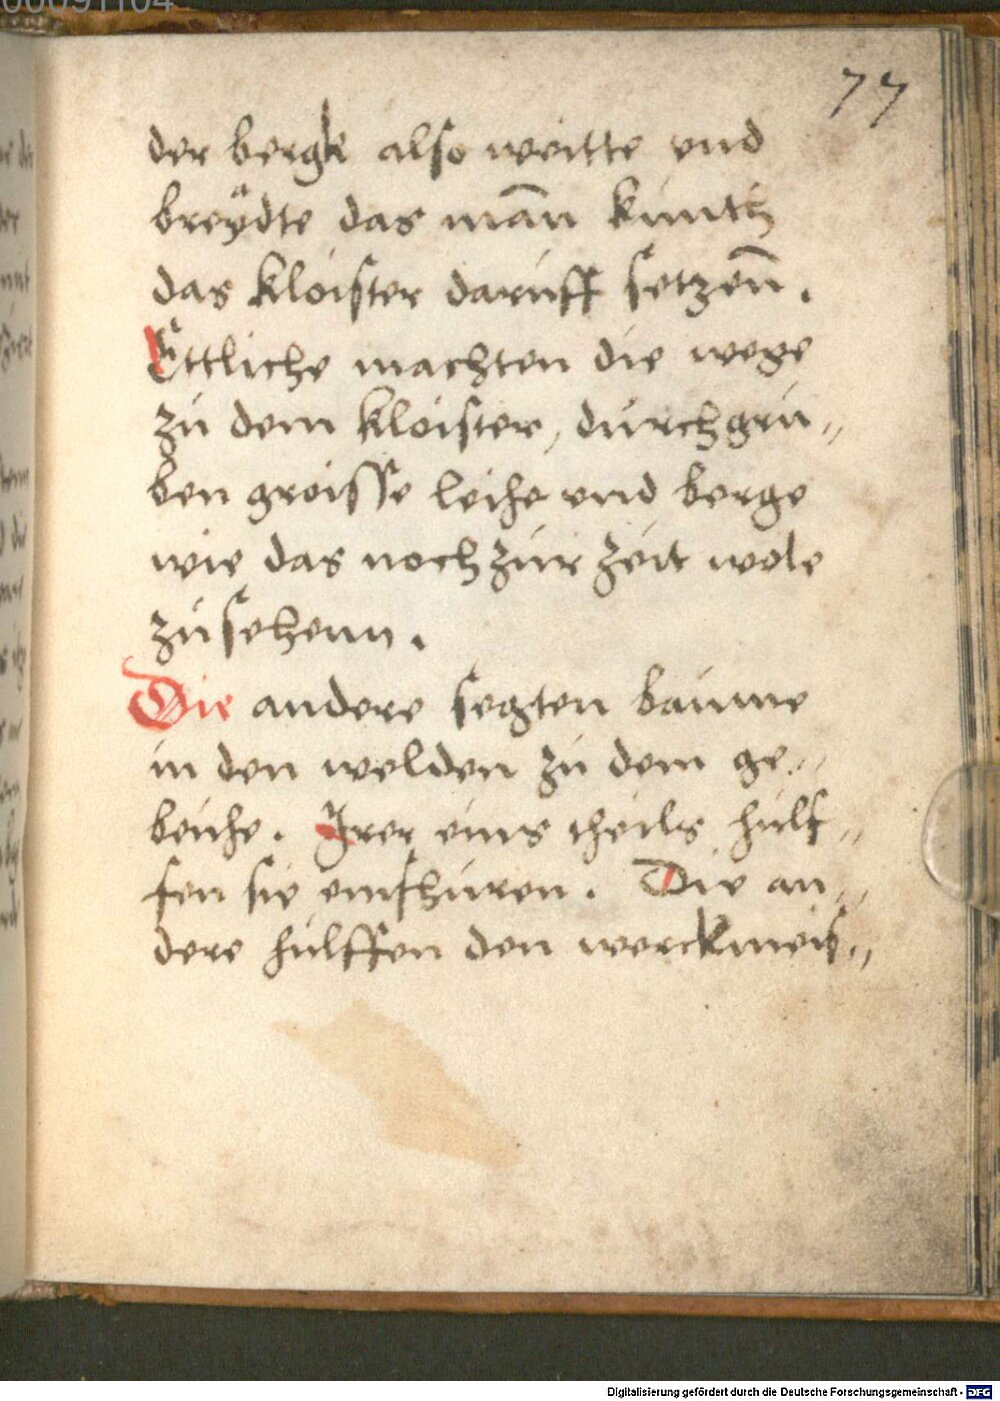 00091104
77
der bergk also weitte vnd
breÿdte das man̄ kunth
das kloister daruff setzen̄.
Ettliche machten die wege
zu dem kloister, durchgru„
ben groisse leihe vnd berge
wie das noch zur zeit wole
zusehenn.
Die andere segten baume
in den welden zu dem ge„
beuhe. Irer eins theils hulf„
fen sie einfhuren. Die an„
dere hulffen den werckmeis„
Digitalisierung gefördert durch die Deutsche Forschungsgemeinschaft - DFG